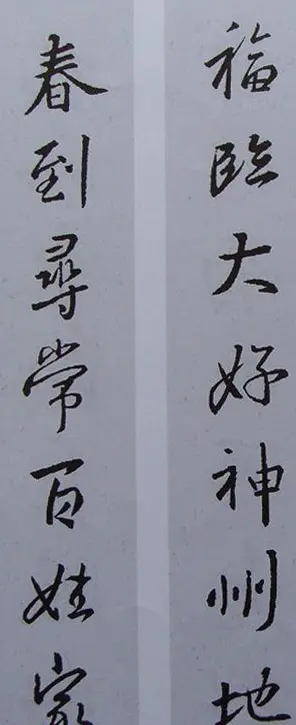 福臨大好神州地
春到尋常百姓家